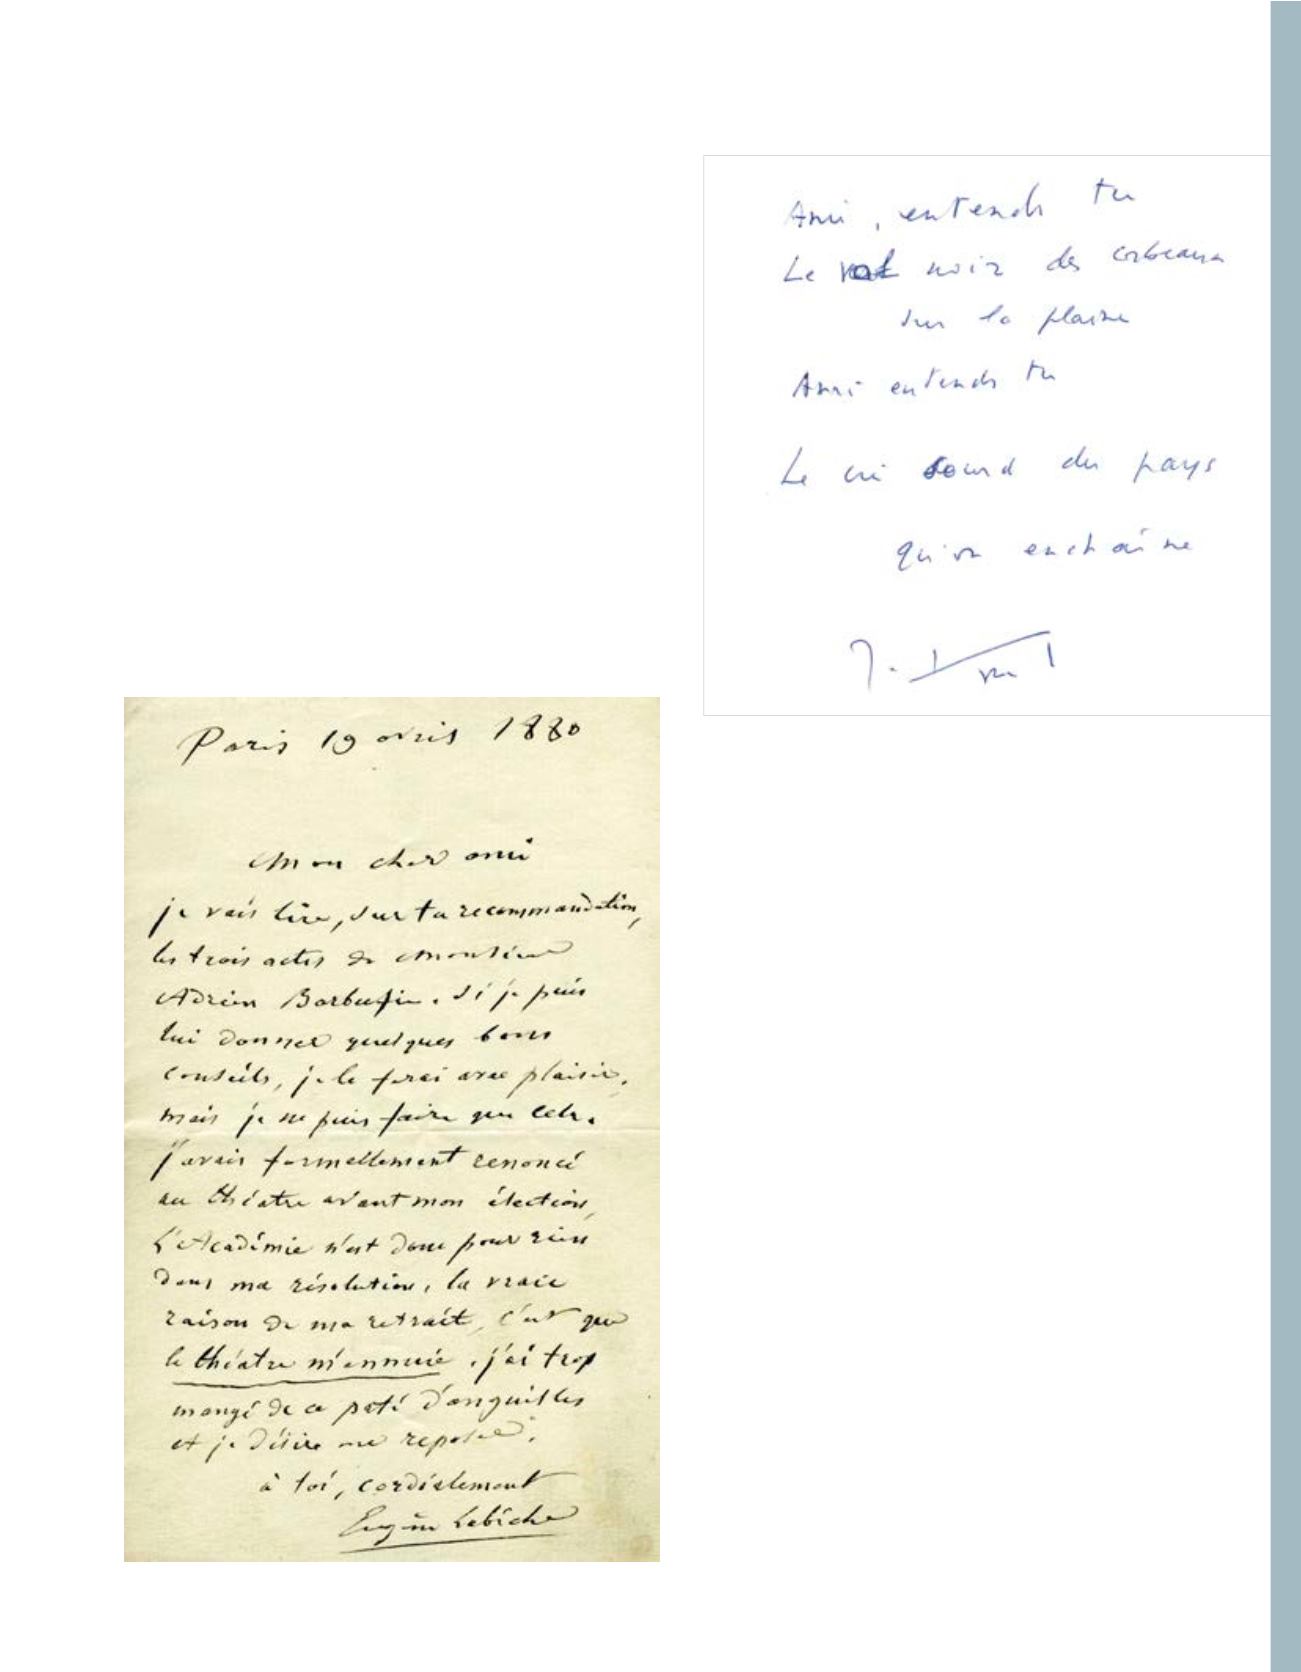 Ami, entends tu
Le vol noir des corbeaux
sur la plaine
Ami entends tu
Le cri sourd du pays
qu'on enchaîne
Paris 19 avril 1880
Mon cher ami
je vais lire, sur ta recommandation,
les trois actes de Monsieur
Adrien Barbusse. Si je puis
lui donner quelques bons
conseils, je le ferai avec plaisir,
mais je ne puis faire que cela.
J'avais formellement renoncé
au théatre avant mon élection,
L'Académie n'est donc pour rien
dans ma résolution, la vraie
raison de ma retraite, c'est que
le théatre m'ennuie. j'ai trop
mangé de ce paté d'anguilles
et je désire me reposer.
à toi, cordialement
Eugène Labiche